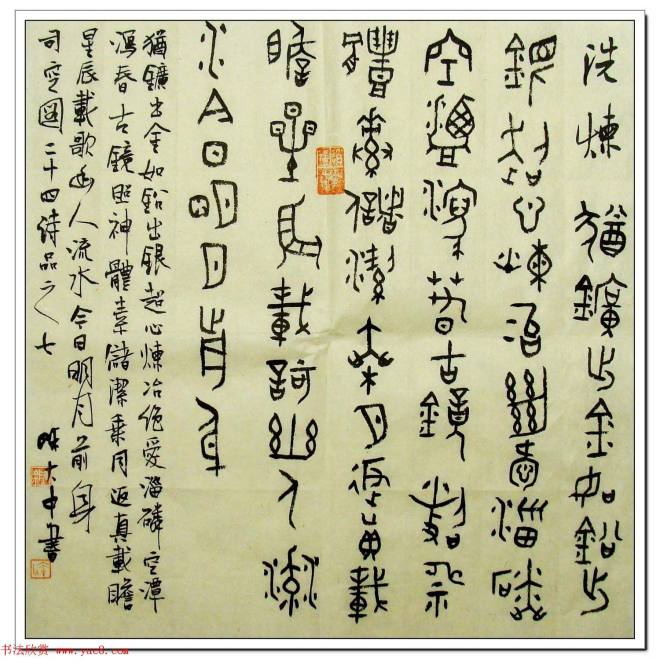 洗煉 猶鑛出金如鉛出
銀超心煉冶絕愛淄磷
空潭瀉春古鏡照神
體素儲潔乘月返真載
瞻星辰載歌幽人流
水今日明月前身
猶鑛出金如鉛出銀超心煉冶絕愛淄磷空潭
瀉春古鏡照神體素儲潔乘月返真載瞻
星辰載歌幽人流水今日明月前身
司空圖二十四诗品之七
大中書
书法欣赏 www.yac8.com